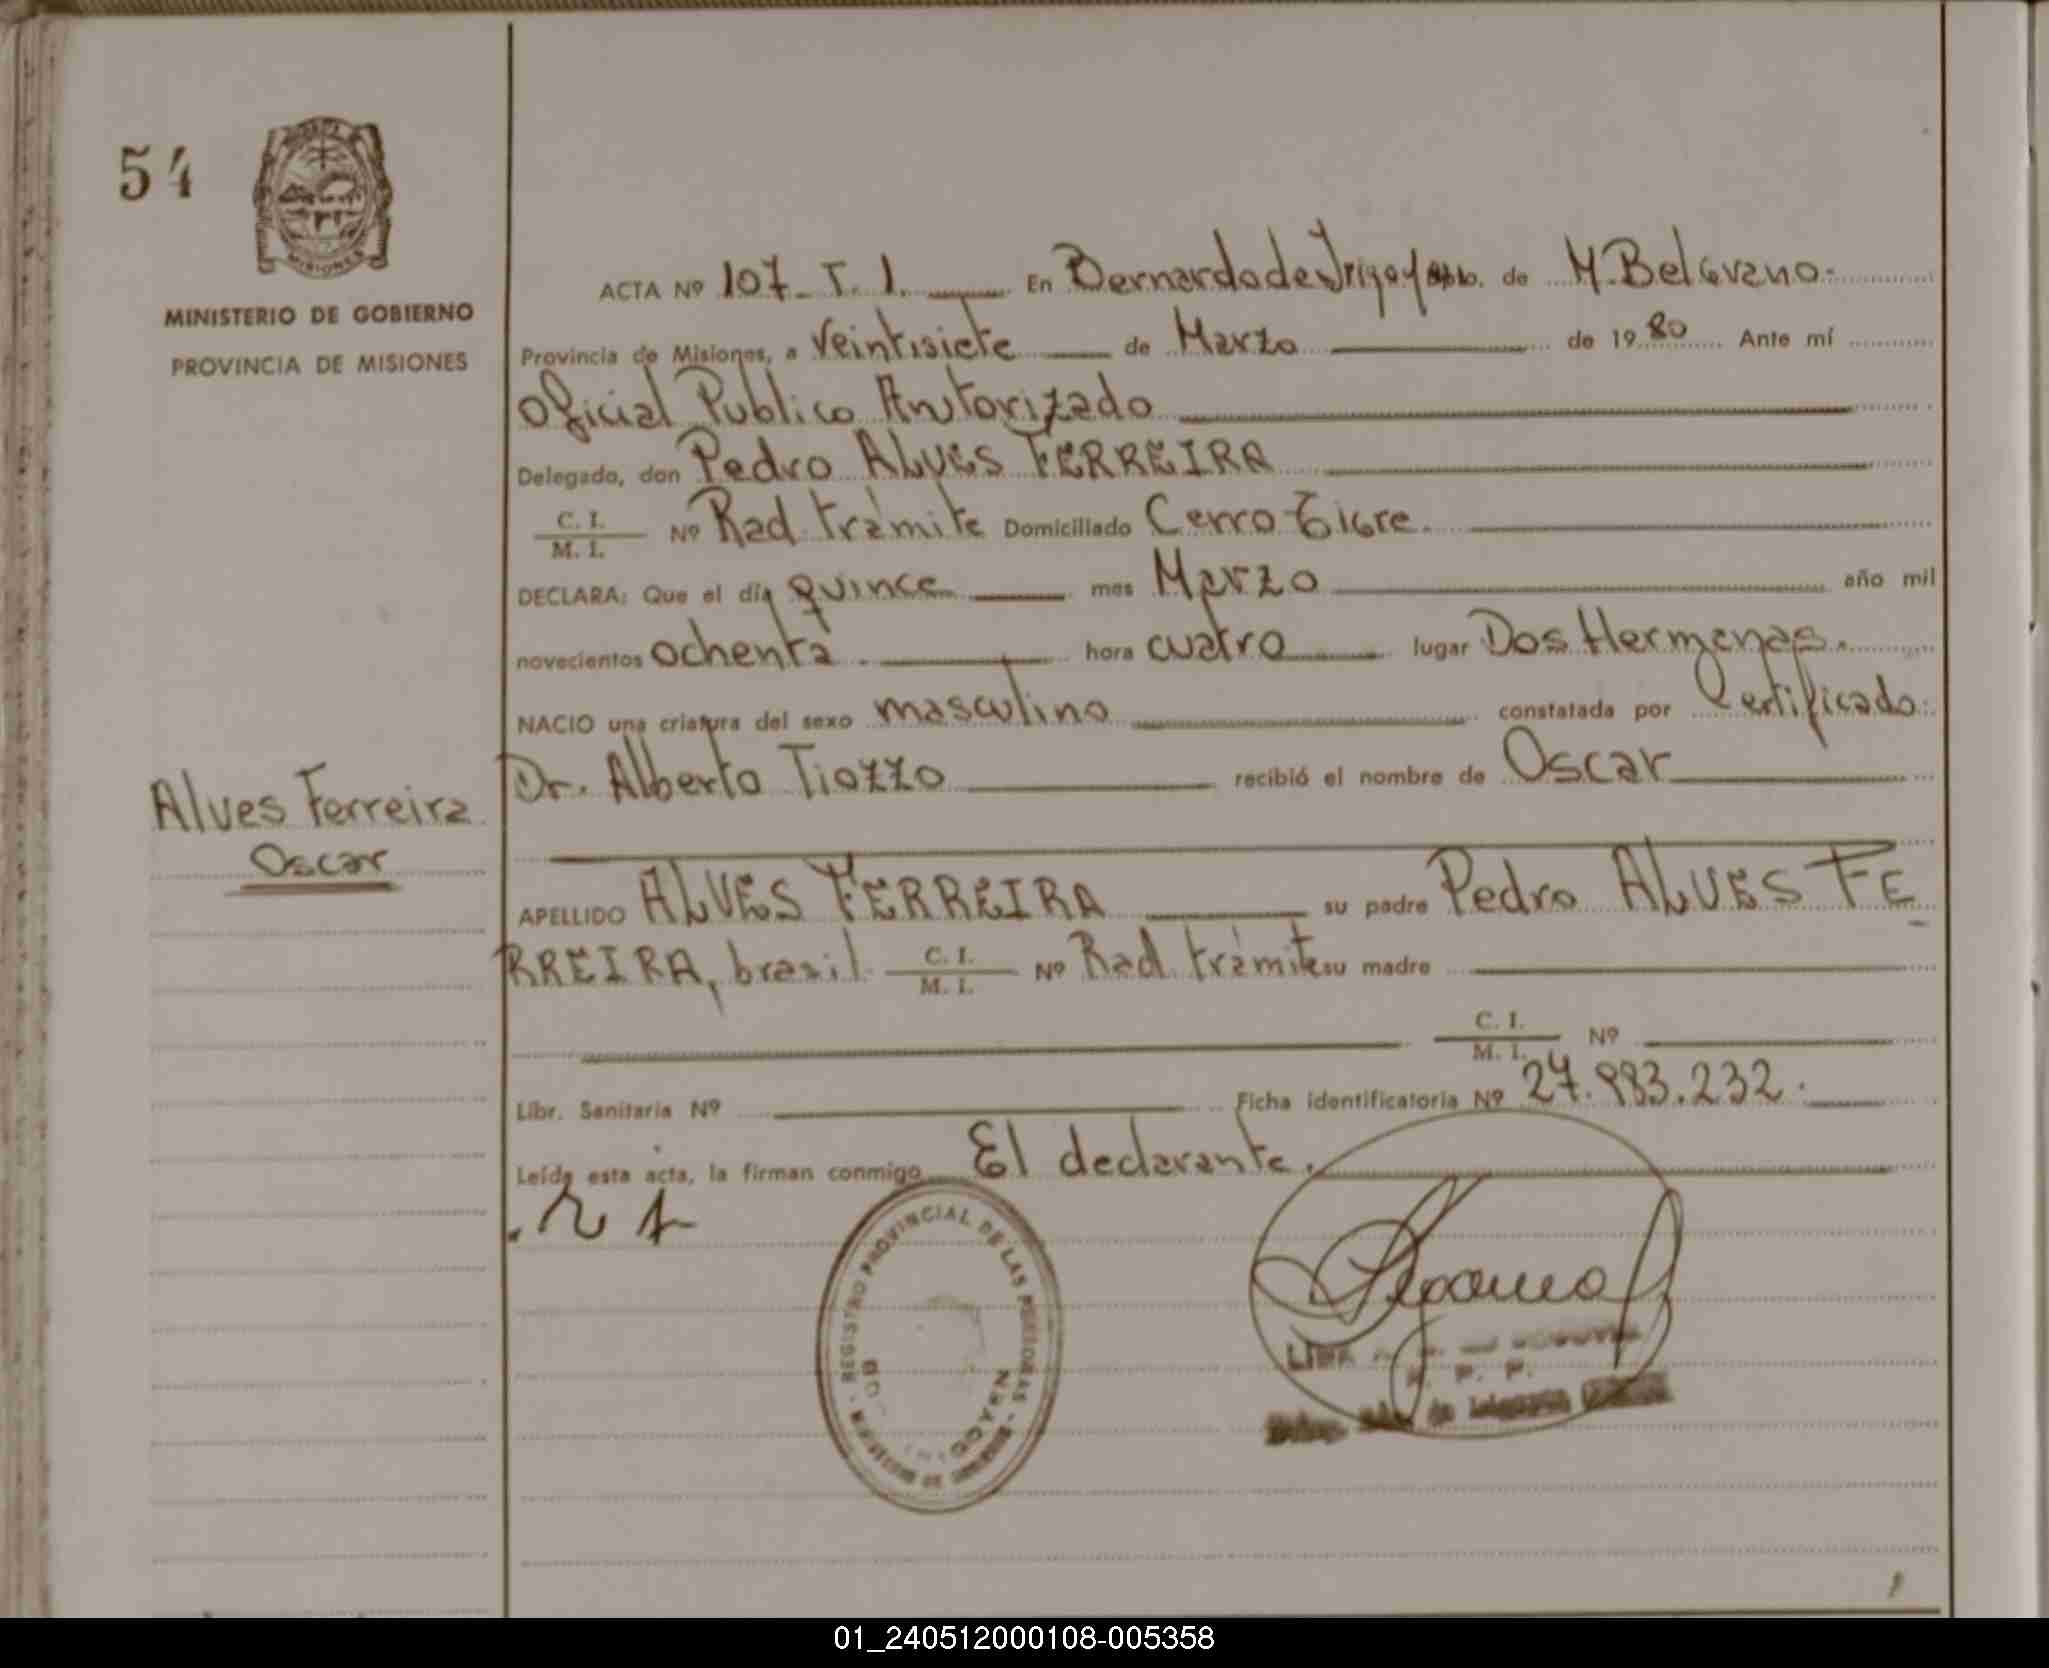 54
MISIONES
MINISTERIO DE GOBIERNO
PROVINCIA DE MISIONES
Alves Ferreira
Oscar
ACTA Nº 107 - T. I. En Bernardo de Irigoyen Dpto. de M. Belgrano.
Provincia de Misiones, a Veintisiete de Marzo de 1980 Ante mí
Oficial Publico Autorizado
Delegado, don Pedro ALVES FERREIRA
C. I.
M. I. Nº Rad. trámite Domiciliado Cerro Tigre.
DECLARA: Que el día quince mes Marzo año mil
novecientos ochenta hora cuatro lugar Dos Hermanas.
NACIO una criatura del sexo masculino constatada por Certificado
Dr. Alberto Tiozzo recibió el nombre de Oscar
APELLIDO ALVES FERREIRA su padre Pedro ALVES FE_
RREIRA, brasil. C. I.
M. I. Nº Rad. trámite su madre
C. I.
M. I. Nº
Libr. Sanitaria Nº Ficha identificatoria Nº 27.993.232.
Leída esta acta, la firman conmigo El declarante.
REGISTRO PROVINCIAL DE LAS PERSONAS
01_240512000108-005358